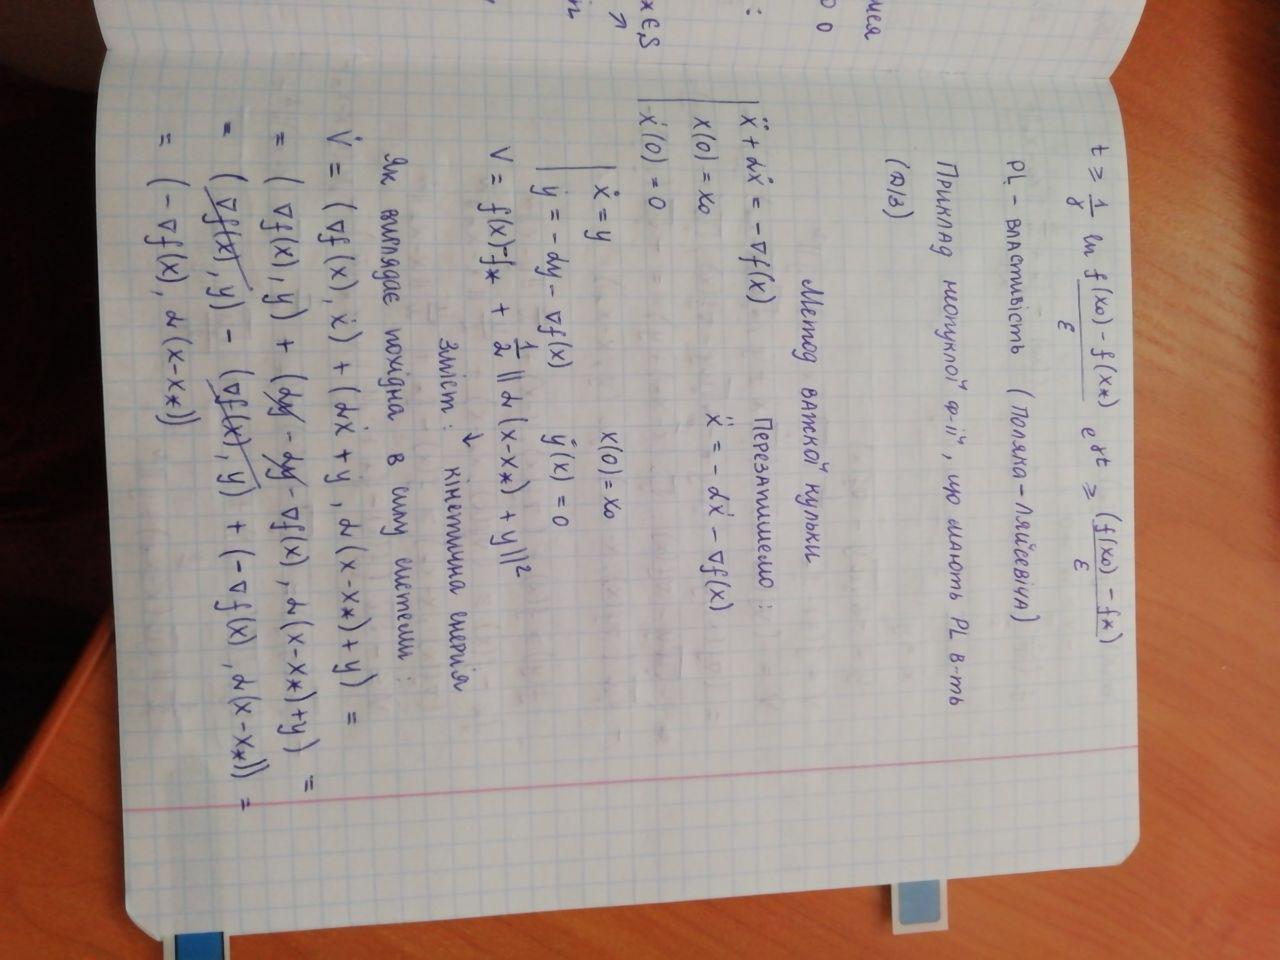 t ≥ 1/γ ln (f(x₀) - f(x*))/ε e^γt ≥ (f(x₀) - f*)/ε
PL - властивість (Поляка-Ляйсевіча)
Приклад неопуклої ф-ії, що мають PL в-ть
(Д/З)
Метод важкої кульки
ẍ + αẋ = -∇f(x) Перезапишемо:
x(0) = x₀ ẍ = - αẋ - ∇f(x)
ẋ(0) = 0
ẋ = y x(0) = x₀
ẏ = - αy - ∇f(x) ẏ(x) = 0
V = f(x) - f* + 1/2 ||α(x-x*) + y||²
↓
Зміст: кінетична енергія
Як виглядає похідна в силу системи:
V̇ = (∇f(x), ẋ) + (αẋ + ẏ, α(x-x*) + y) =
= (∇f(x), y) + (αy - αy - ∇f(x), α(x-x*)+y) =
= (∇f(x), y) - (∇f(x), y) + (-∇f(x), α(x-x*)) =
= (-∇f(x), α(x-x*))
мся
0
:
x ∈ S
↗